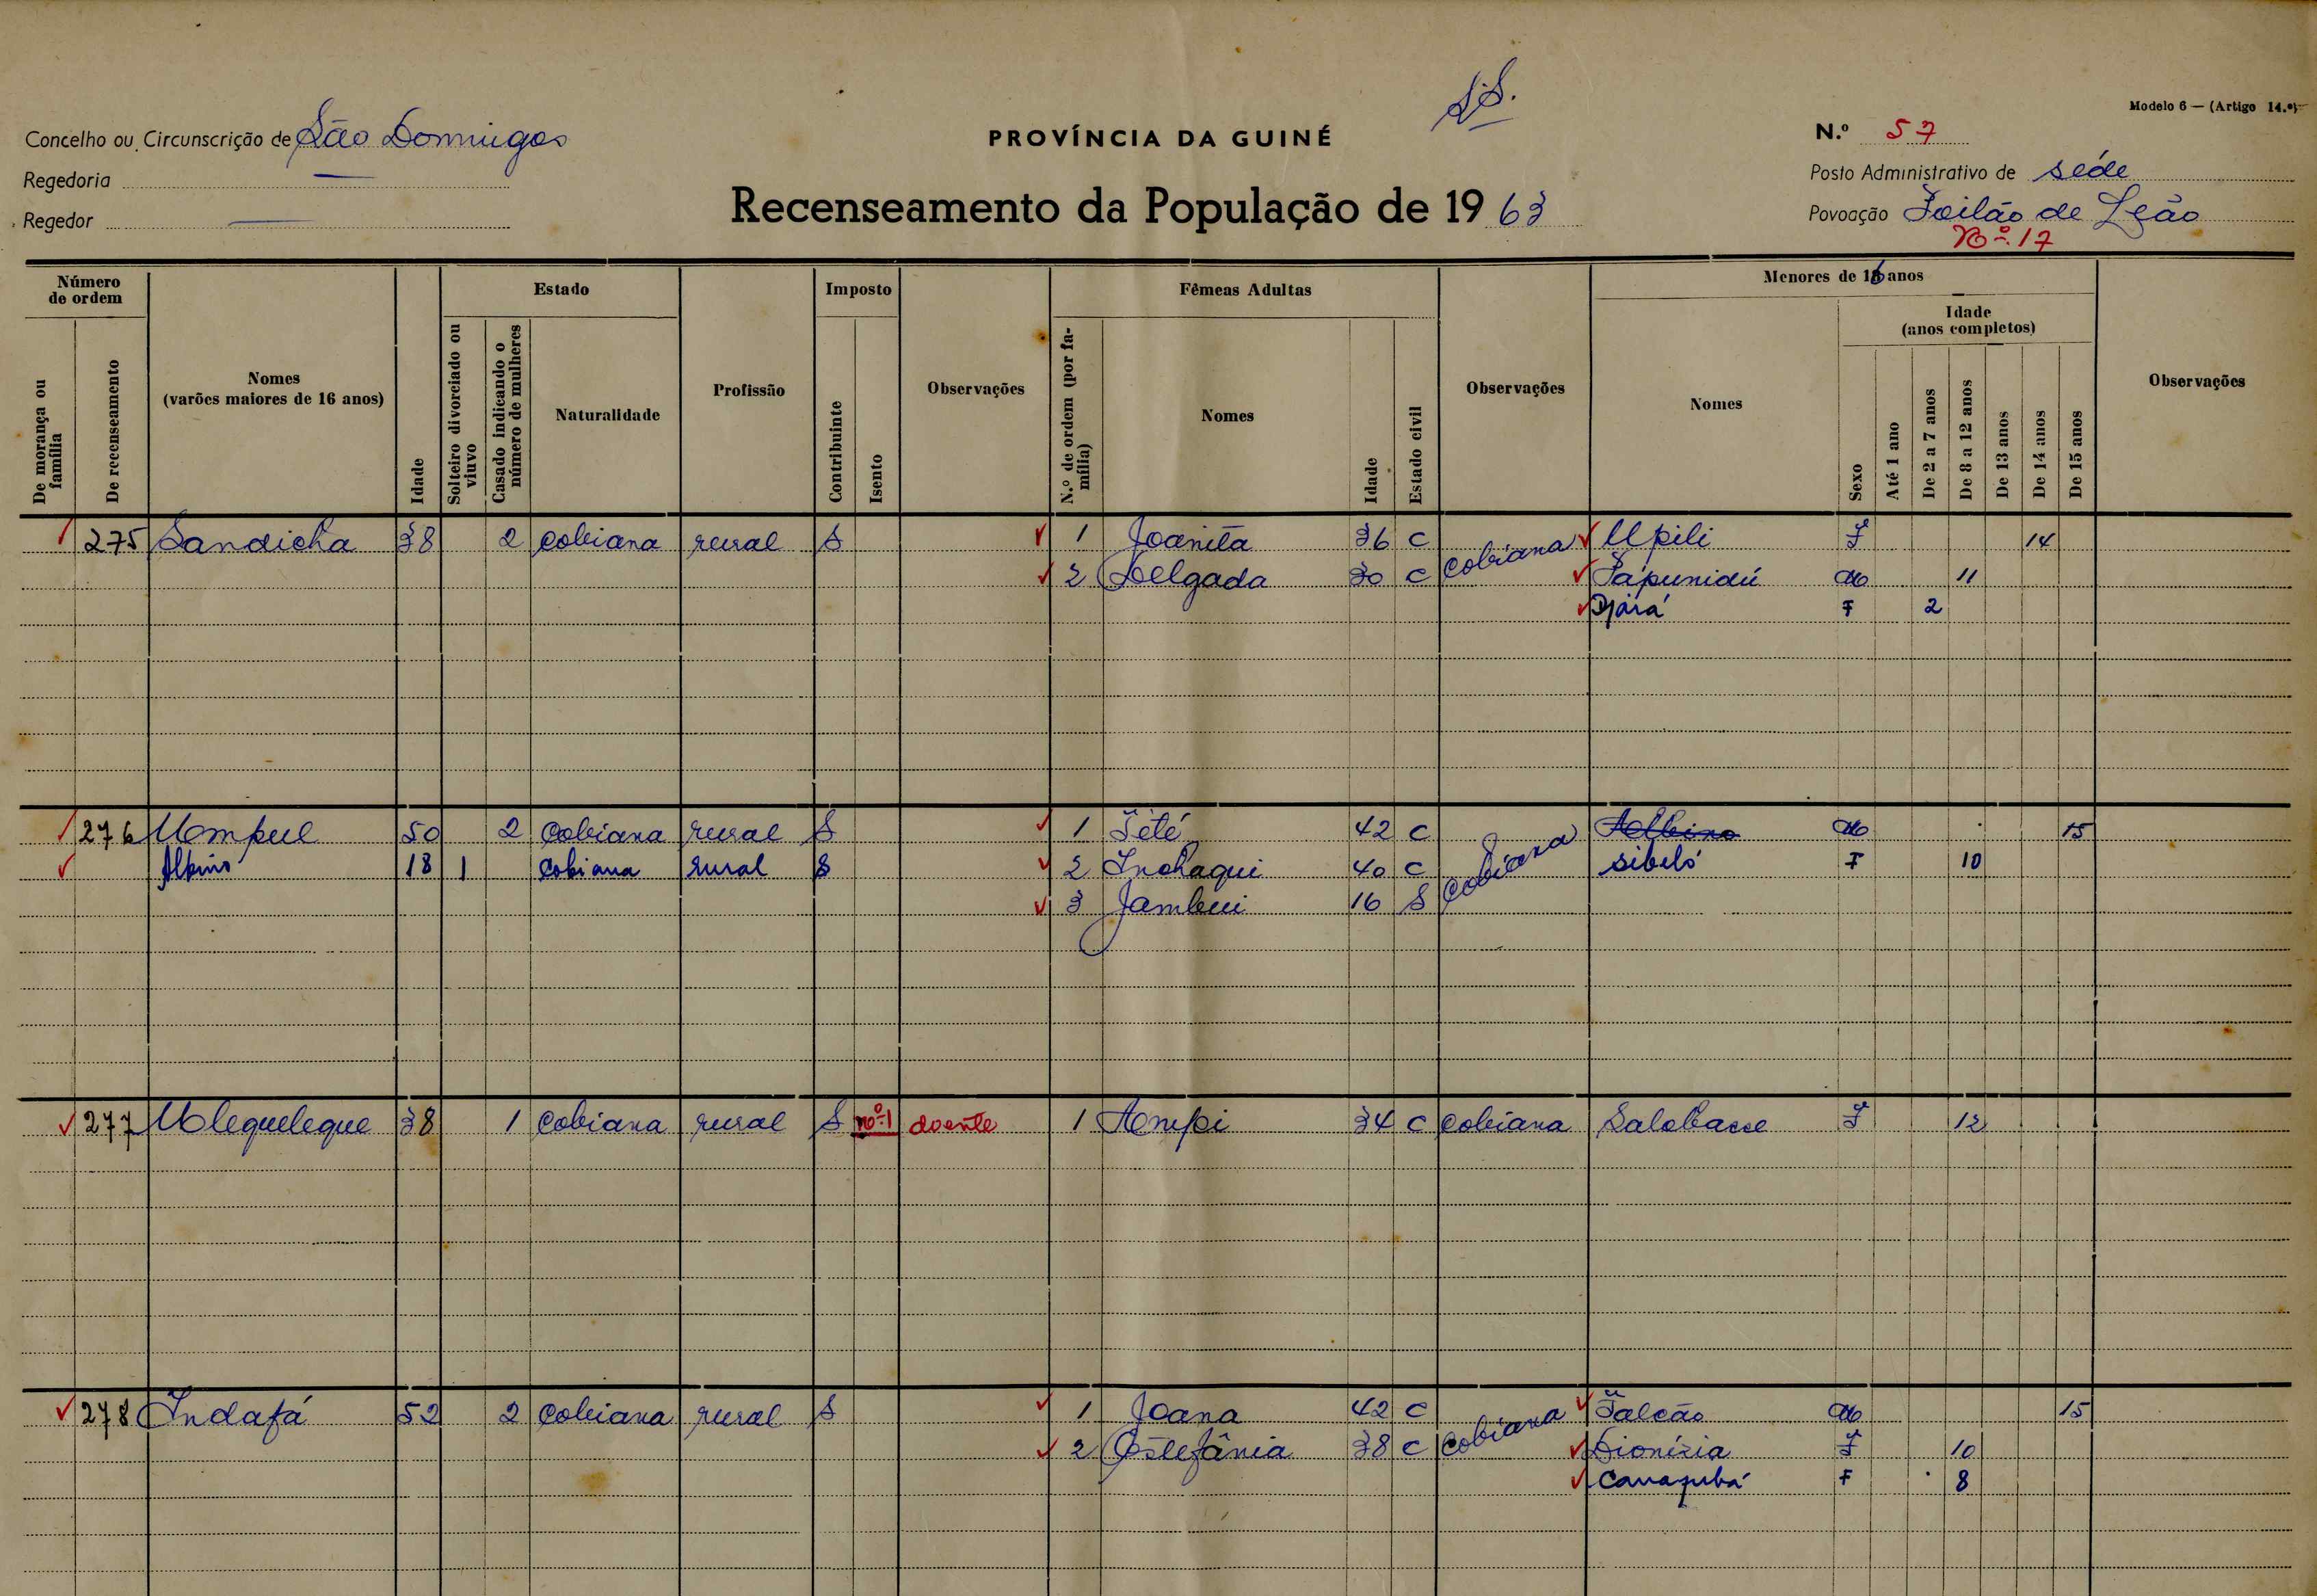 S.S.
Modelo 6 — (Artigo 14.º)
Concelho ou Circunscrição de São Domingos
PROVÍNCIA DA GUINÉ
N.º 57
Regedoria —
Posto Administrativo de séde
Regedor —
Recenseamento da População de 1963
Povoação Foilão de Leão
Nº. 17
Número de ordem
De morança ou família
De recenseamento
Nomes
(varões maiores de 16 anos)
Idade
Estado
Solteiro divorciado ou viuvo
Casado indicando o número de mulheres
Naturalidade
Profissão
Imposto
Contribuinte
Isento
Observações
Fêmeas Adultas
N.º de ordem (por família)
Nomes
Idade
Estado civil
Observações
Menores de 16 anos
Nomes
Sexo
Idade
(anos completos)
Até 1 ano
De 2 a 7 anos
De 8 a 12 anos
De 13 anos
De 14 anos
De 15 anos
Observações
275 Sandicha 38 2 cobiana rural S 1 Joanita 36 C cobiana Upili F 14
2 Delgada 30 C Tápunidú M 11
Djárá F 2
276 Umpul 50 2 Cobiana rural S 1 Têté 42 C Cobiana Albino M 15
Albino 18 1 Cobiana rural S 2 Inchaqui 40 C sibeló F 10
3 Jambui 16 S
277 Uleguelegue 38 1 Cobiana rural S nº-1 doente 1 Ampi 34 C Cobiana Salobasse F 12
278 Indafá 52 2 Cobiana rural S 1 Joana 42 C Cobiana Falcão M 15
2 Estefânia 38 C Dionízia F 10
F 8